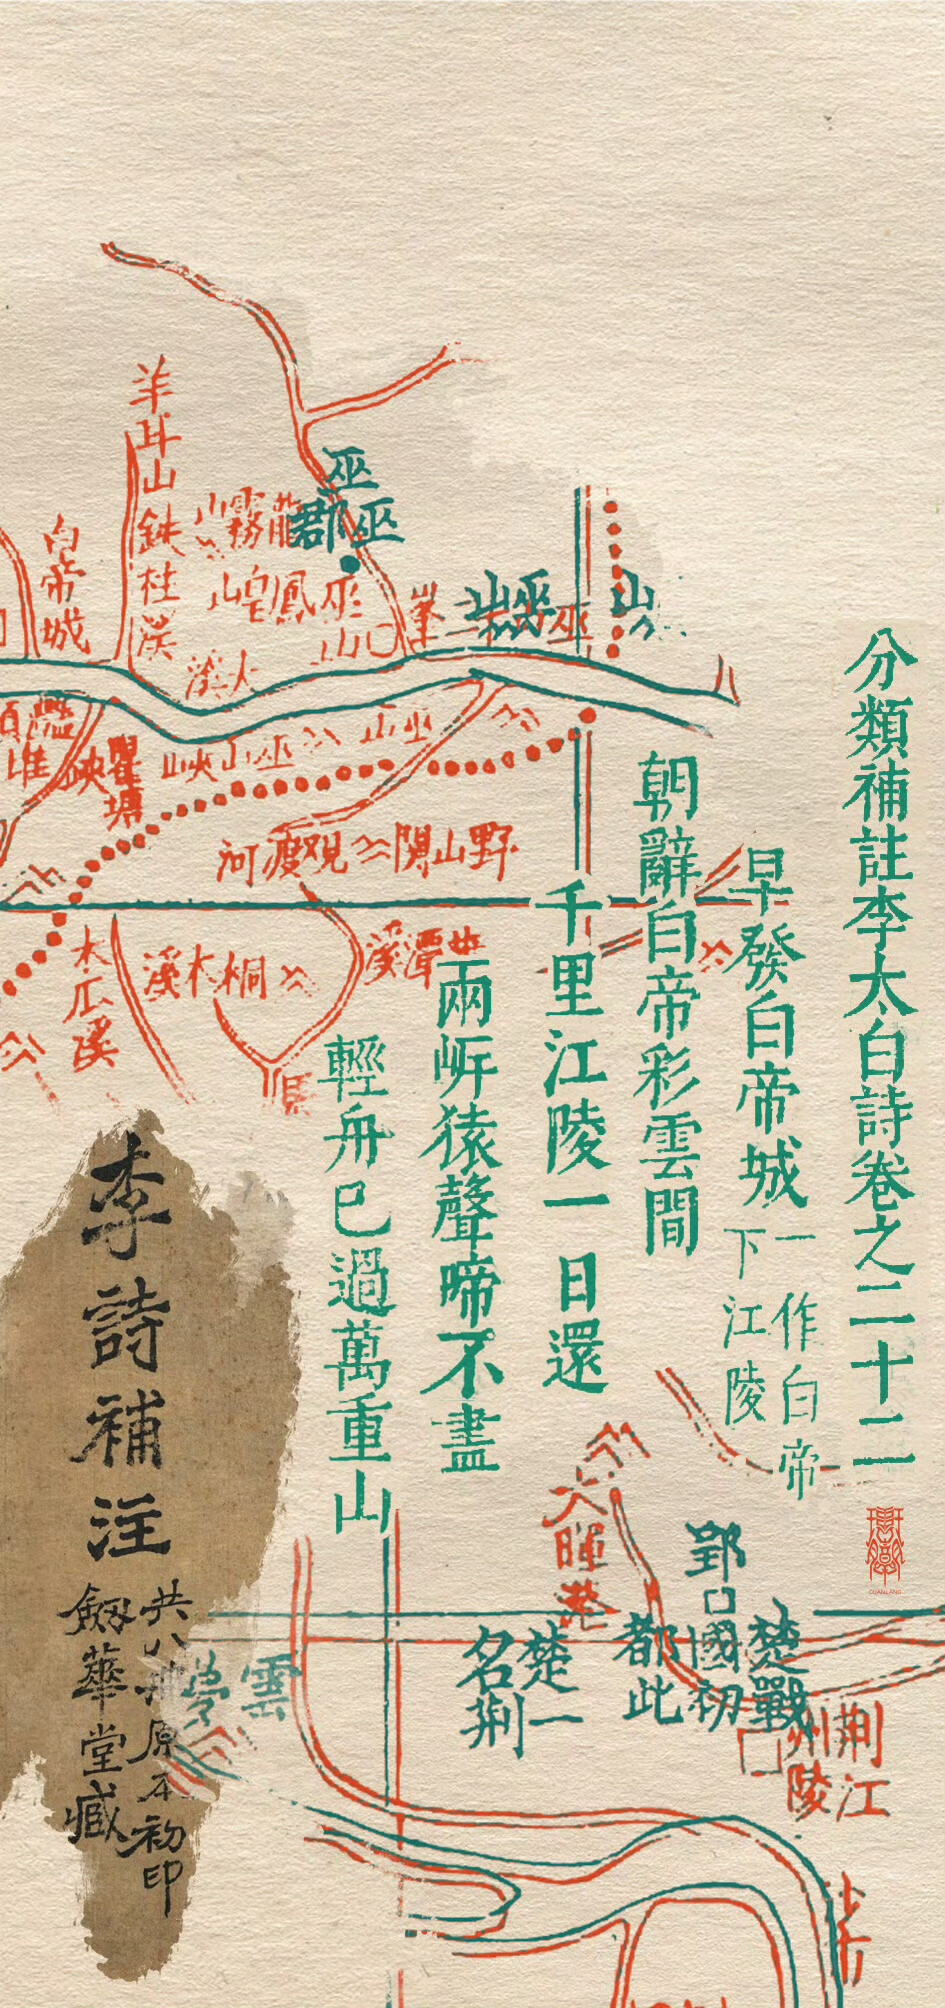 分類補註李太白詩卷之二十二
早發白帝城
一作白帝
下江陵
朝辭白帝彩雲間
千里江陵一日還
兩岍猿聲啼不盡
輕舟已過萬重山
李詩補注
共八冊原本初印
劔華堂臧
羊耳山
鉄柱溪
白帝城
霧山
鳳皇山
巫山
巫郡
巫
巫山
巫山峽
瞿塘
峽
大溪
野山関
观渡河
木瓜溪
桐木溪
潭溪
郢
楚戰國初都此
楚一名荆
雲夢
荆州
江陵
GUANLANG